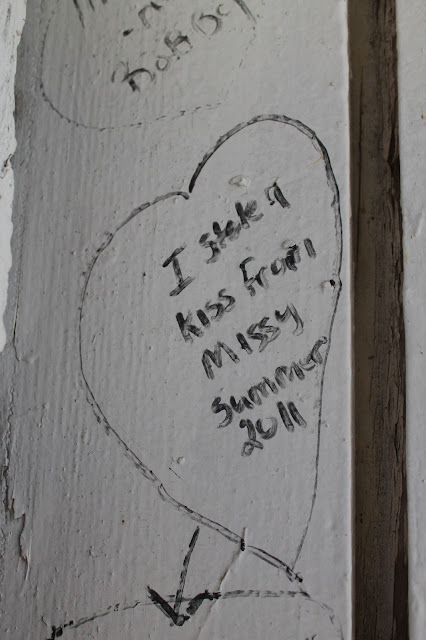 in
I stole a
Kiss From
Missy
summer
2011